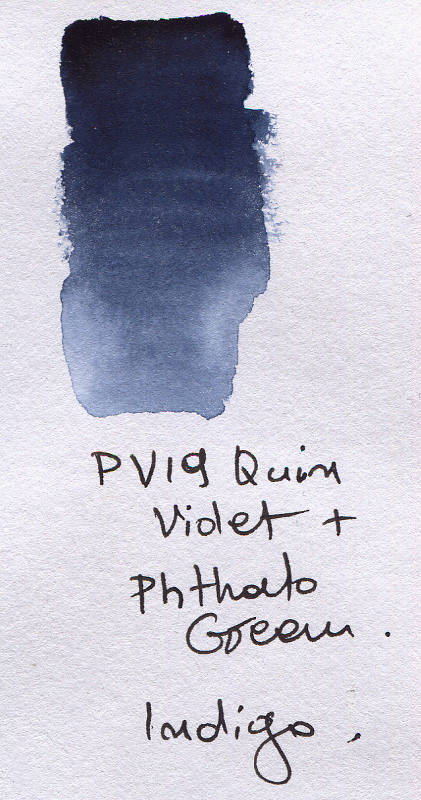 PV19 Quin
Violet +
Phthalo
Green.
Indigo.